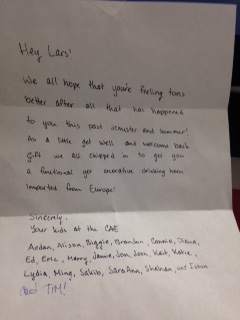 Hey Lars!
We all hope that you're feeling tons
better after all that has happened
to you this past semester and summer!
As a little get well and welcome back
gift we all chipped in to get you
a functional yet decorative drinking horn
imported from Europe!
Sincerely,
Your kids at the CAE
Aedan, Alison, Biggie, Brandon, Connie, Diana,
Ed, Eric, Harry, Jamie, Jon, Josh, Kait, Katie,
Lydia, Ming, Sakib, SaraAnn, Shehan, and
TIM!